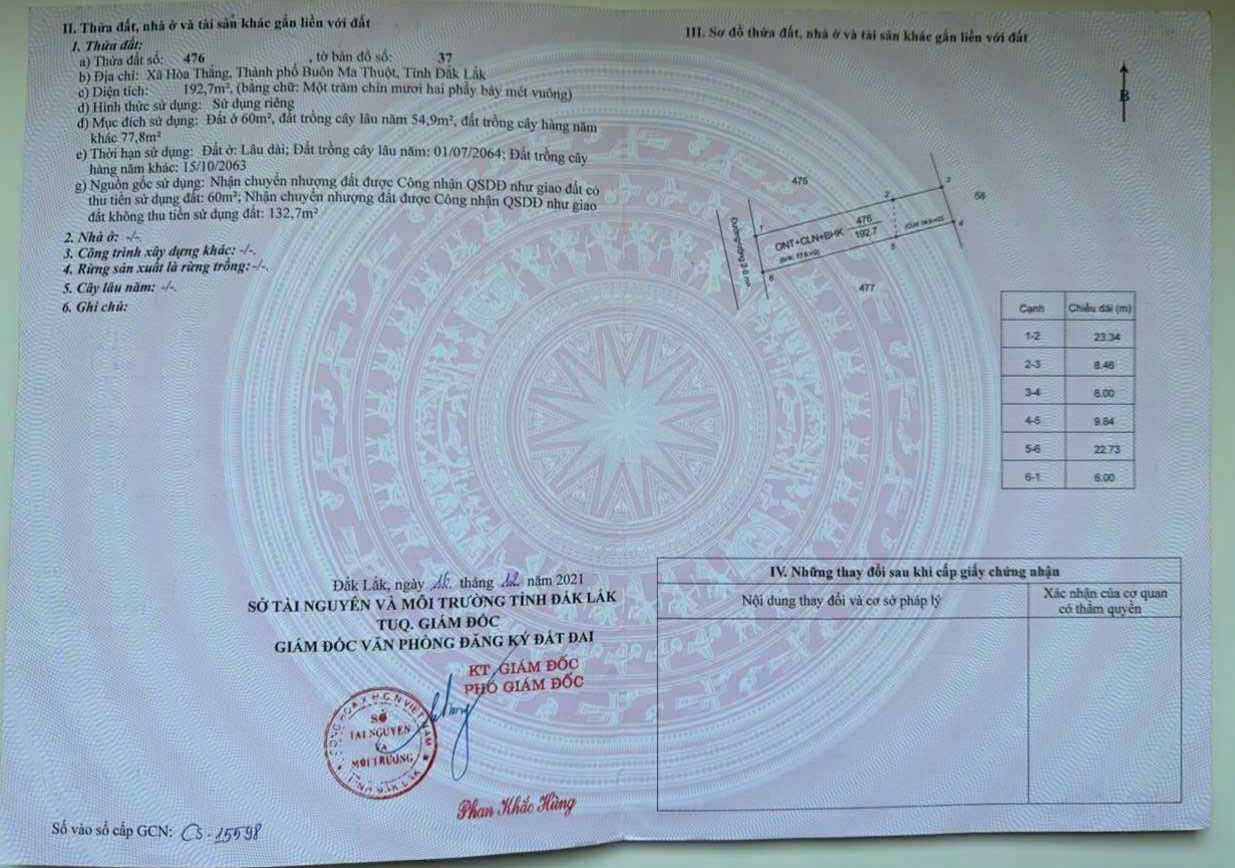 II. Thửa đất, nhà ở và tài sản khác gắn liền với đất
1. Thửa đất:
a) Thửa đất số: 476 , tờ bản đồ số: 37
b) Địa chỉ: Xã Hòa Thắng, Thành phố Buôn Ma Thuột, Tỉnh Đắk Lắk
c) Diện tích: 192,7m², (bằng chữ: Một trăm chín mươi hai phẩy bảy mét vuông)
d) Hình thức sử dụng: Sử dụng riêng
đ) Mục đích sử dụng: Đất ở 60m², đất trồng cây lâu năm 54,9m², đất trồng cây hàng năm
khác 77,8m²
e) Thời hạn sử dụng: Đất ở: Lâu dài; Đất trồng cây lâu năm: 01/07/2064; Đất trồng cây
hàng năm khác: 15/10/2063
g) Nguồn gốc sử dụng: Nhận chuyển nhượng đất được Công nhận QSDĐ như giao đất có
thu tiền sử dụng đất: 60m²; Nhận chuyển nhượng đất được Công nhận QSDĐ như giao
đất không thu tiền sử dụng đất: 132,7m²
2. Nhà ở: -/-.
3. Công trình xây dựng khác: -/-.
4. Rừng sản xuất là rừng trồng: -/-.
5. Cây lâu năm: -/-.
6. Ghi chú:
Đắk Lắk, ngày 16 tháng 12 năm 2021
SỞ TÀI NGUYÊN VÀ MÔI TRƯỜNG TỈNH ĐẮK LẮK
TUQ. GIÁM ĐỐC
GIÁM ĐỐC VĂN PHÒNG ĐĂNG KÝ ĐẤT ĐAI
KT. GIÁM ĐỐC
PHÓ GIÁM ĐỐC
SỞ
TÀI NGUYÊN
VÀ
MÔI TRƯỜNG
TỈNH ĐẮK LẮK
Phan Khắc Hùng
Số vào sổ cấp GCN: CS-15598
III. Sơ đồ thửa đất, nhà ở và tài sản khác gắn liền với đất
B
475
3
2
58
1
476
ONT+CLN+BHK 192.7
4
5
6
477
Cạnh Chiều dài (m)
1-2 23.34
2-3 8.46
3-4 6.00
4-5 9.84
5-6 22.73
6-1 6.00
IV. Những thay đổi sau khi cấp giấy chứng nhận
Nội dung thay đổi và cơ sở pháp lý
Xác nhận của cơ quan
có thẩm quyền